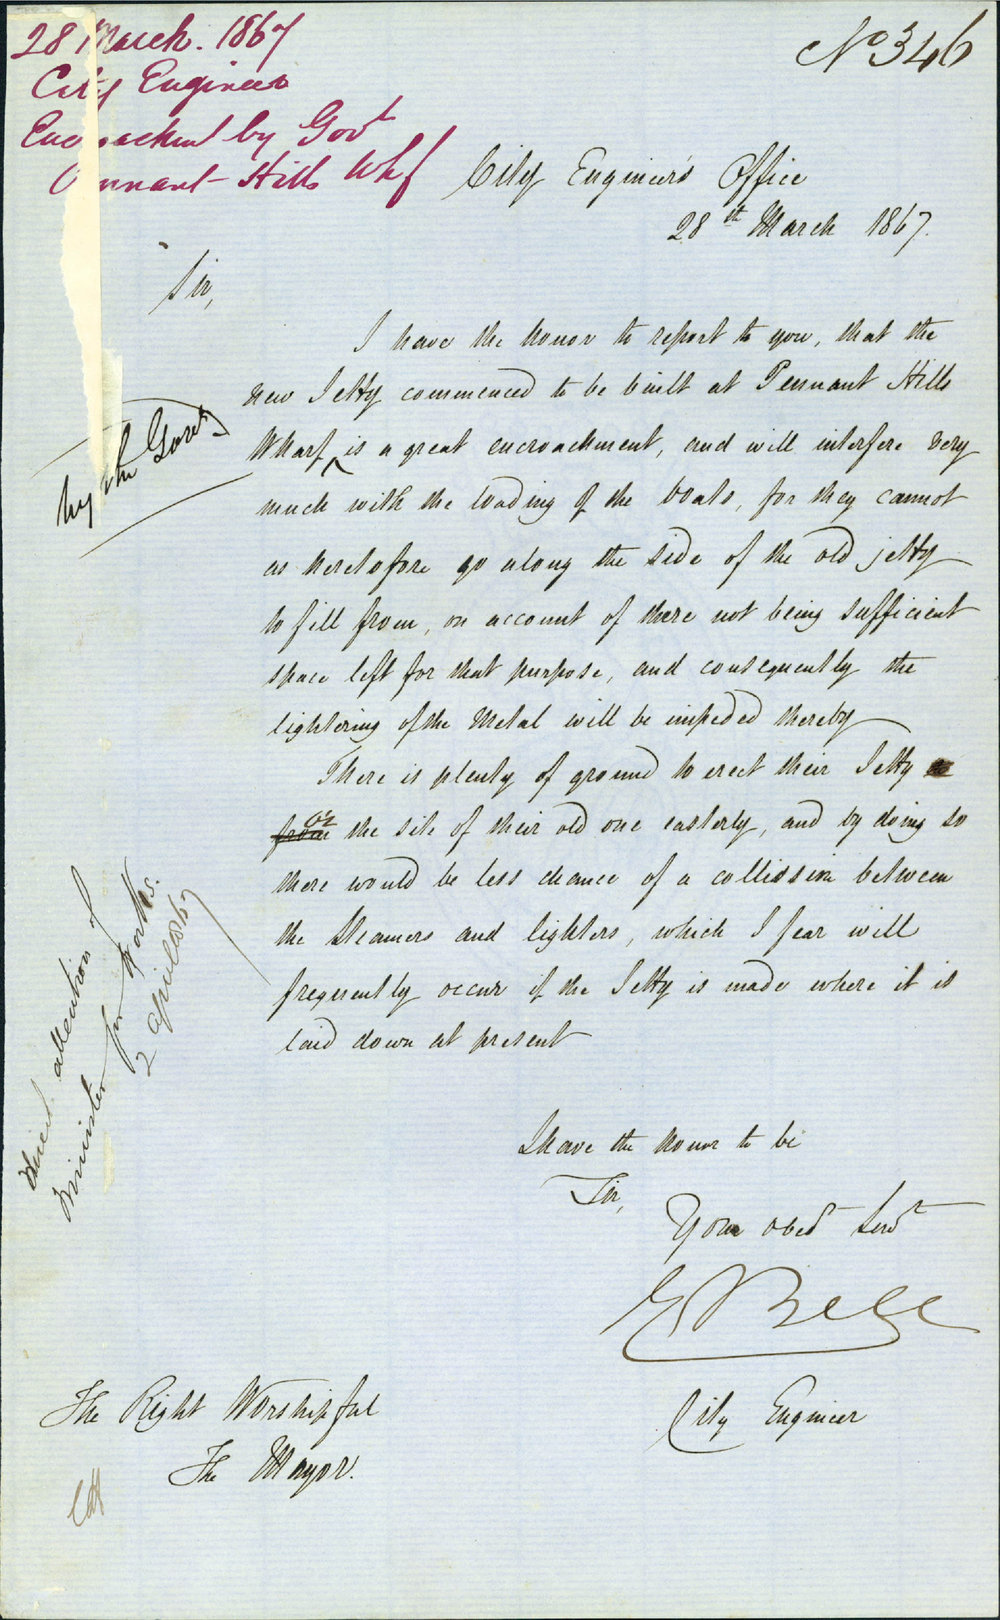 28 March. 1867
City Engineer
Encroachmt by Govt
Pennant Hills Whf
No 346
City Engineer's Office
28th March 1867.
Sir,
I have the honor to report to you, that the
new Jetty commenced to be built at Pennant Hills
Wharf ^ is a great encroachment, and will interfere very
by the Govt
much with the loading of the boats, for they cannot
as heretofore go along the side of the old jetty
to fill from, on account of there not being sufficient
space left for that purpose, and consequently the
lightering of the Metal will be impeded thereby
There is plenty of ground to erect their Jetty
from on the site of their old one easterly, and by doing so
there would be less chance of a collission between
the Steamers and lighters, which I fear will
frequently occur if the Jetty is made where it is
laid down at present
Direct attention of
Minister for Works.
2 April 1867
I have the honor to be
Sir,
Your obedt Servt
E Bell
City Engineer
The Right Worshipful
The Mayor.